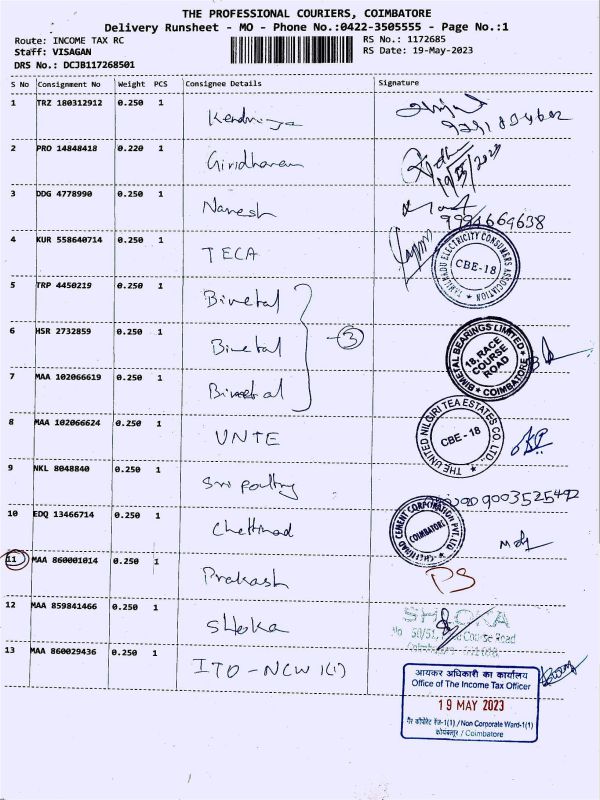 THE PROFESSIONAL COURIERS, COIMBATORE
Delivery Runsheet - MO - Phone No.:0422-3505555 - Page No.:1
Route: INCOME TAX RC
RS No.: 1172685
Staff: VISAGAN
RS Date: 19-May-2023
DRS No.: DCJB117268501
S No Consignment No Weight PCS Consignee Details Signature
1 TRZ 180312912 0.250 1
2 PRO 14848418 0.220 1 Giridharan
19/5/2023
3 DDG 4778990 0.250 1 Naresh
9994669638
4 KUR 558640714 0.250 1 TECA
TAMILNADU ELECTRICITY CONSUMERS ASSOCIATION
CBE-18
5 TRP 4450219 0.250 1 Bimetal
6 HSR 2732859 0.250 1 Bimetal
3
BIMETAL BEARINGS LIMITED
18, RACE COURSE ROAD
COIMBATORE
7 MAA 102066619 0.250 1 Bimetal
8 MAA 102066624 0.250 1 UNTE
THE UNITED NILGIRI TEA ESTATES CO. LTD.
CBE - 18
9 NKL 8048840 0.250 1 Sri poultry
9003525492
10 EDQ 13466714 0.250 1 Chettinad
CHETTINAD CEMENT CORPORATION PVT. LTD.
COIMBATORE
11 MAA 860001014 0.250 1 Prakash
PS
12 MAA 859841466 0.250 1 Shoka
SHLOKA
No 50/51, Race Course Road
13 MAA 860029436 0.250 1 ITO - NCW 1(1)
आयकर अधिकारी का कार्यालय
Office of The Income Tax Officer
19 MAY 2023
गैर कॉर्पोरेट रेंज-1(1) / Non Corporate Ward-1(1)
कोयंबत्तूर / Coimbatore